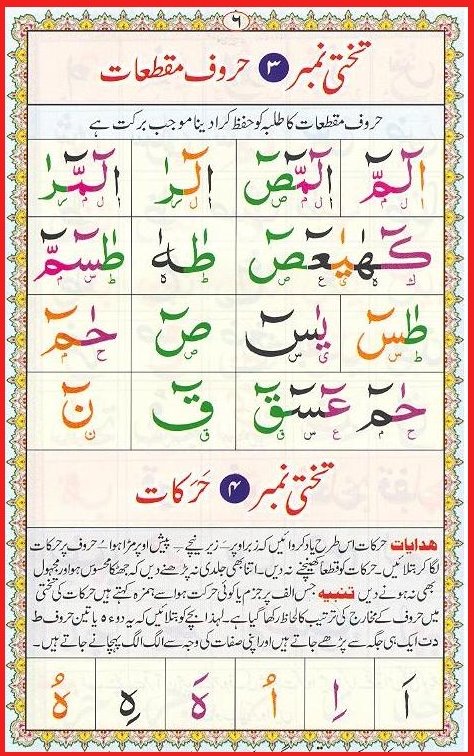 ٦
تختی نمبر ۳ حروف مقطعات
حروف مقطعات کا طلبہ کو حفظ کرا دینا موجب برکت ہے
الٓمّٓ الٓمّٓصٓ الٓرٰ الٓمّٓرٰ
ا ل م ا ل م ص ا ل ر ا ل م ر
كٓهٰيٰعٓصٓ طٰهٰ طٰسٓمّٓ
ك ه ی ع ص ط ه ط س م
طٰسٓ يٰسٓ صٓ حٰمٓ
ط س ی س ص ح م
حٰمٓ عٓسٓقٓ قٓ نٓ
ح م ع س ق ق ن
تختی نمبر ۴ حَرَکات
ھدایات حرکات اس طرح یاد کروائیں کہ زبر اوپر ـَ زیر نیچے ـِ پیش اوپر مڑا ہوا ـُ حروف پر حرکات
لگا کر بتلائیں۔ حرکات کو قطعاً کھینچنے نہ دیں۔ اتنا بھی جلدی نہ پڑھنے دیں کہ جھٹکا محسوس ہو اور مجہول
بھی نہ ہونے دیں تنبیه جس الف پر جزم یا کوئی حرکت ہو اسے ہمزہ کہتے ہیں حرکات کی تختی
میں حروف کے مخارج کی ترتیب کا لحاظ رکھا گیا ہے۔ لہذا بچے کو بتلائیں کہ یہ دو ء ہ یا تین حروف ط
د ت ایک ہی جگہ سے پڑھے جاتے ہیں اور اپنی صفات کی وجہ سے الگ الگ پہچانے جاتے ہیں۔
اَ اِ اُ هَ هِ هُ